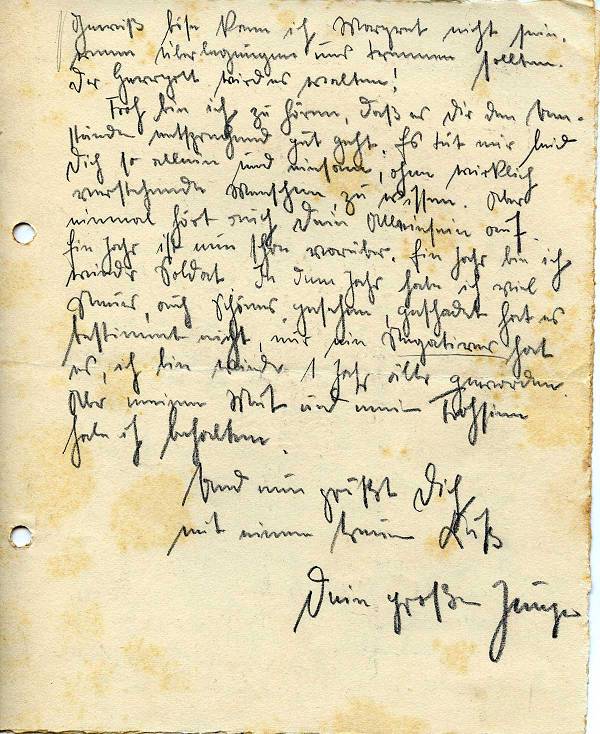 böse kann ich Margret nicht sein,
wenn Überlegungen uns trennen sollten.
Der Herrgott wird es walten!
Froh bin ich zu hören, daß es Dir den Um-
ständen entsprechend gut geht. Es tut mir leid
Dich so allein und einsam, ohne wirklich
verstehende Menschen zu wissen. Aber
einmal hört auch Dein Alleinsein auf.
Ein Jahr ist nun schon vorüber. Ein Jahr bin ich
wieder Soldat. In dem Jahr habe ich viel
Neues, auch Schönes, gesehen, geschadet hat es
bestimmt nicht, nur ein Negatives hat
es, ich bin wieder 1 Jahr älter geworden.
Aber meinen Mut und mein Frohsinn
habe ich behalten.
Und nun grüßt Dich
mit einem treuen Kuß
Dein großer Junge